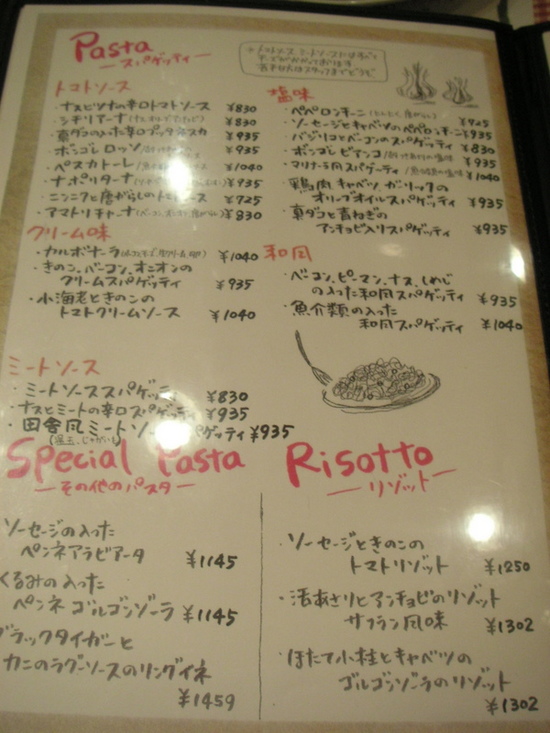 Pasta
スパゲッティ
トマトソース
・ナスとツナの辛口トマトソース ¥830
・シチリアーナ ¥830
・真ダコの入った辛口プッタネスカ ¥935
・ボンゴレロッソ ¥935
・ペスカトーレ ¥1040
・ナポリターナ ¥935
・ニンニクと唐がらしのトマトソース ¥725
・アマトリチャーナ ¥830
クリーム味
・カルボナーラ ¥1040
・きのこ、ベーコン、オニオンの
クリームスパゲッティ ¥935
・小海老ときのこの
トマトクリームソース ¥1040
ミートソース
・ミートソーススパゲッティ ¥830
・ナスとミートの辛口スパゲッティ ¥935
・田舎風ミートソーススパゲッティ ¥935
塩味
・ペペロンチーニ
・ソーセージとキャベツのペペロンチーニ ¥935
・バジリコとベーコンのスパゲッティ ¥830
・ボンゴレビアンコ ¥935
・マリナーラ風スパゲーティ ¥1040
・鶏肉キャベツガーリックの
オリーブオイルスパゲッティ ¥935
・真ダコと青ねぎの
アンチョビ入りスパゲッティ ¥935
和風
・ベーコン、ピーマン、ナス、しめじ
の入った和風スパゲッティ ¥935
・魚介類の入った
和風スパゲッティ ¥1040
Special Pasta
その他のパスタ
ソーセージの入った
ペンネアラビアータ ¥1145
くるみの入った
ペンネゴルゴンゾーラ ¥1145
ブラックタイガーと
カニのラグーソースのリングイネ
¥1459
Risotto
リゾット
・ソーセージときのこの
トマトリゾット ¥1250
・活あさりとアンチョビのリゾット
サフラン風味 ¥1302
・ほたて小柱とキャベツの
ゴルゴンゾーラのリゾット
¥1302